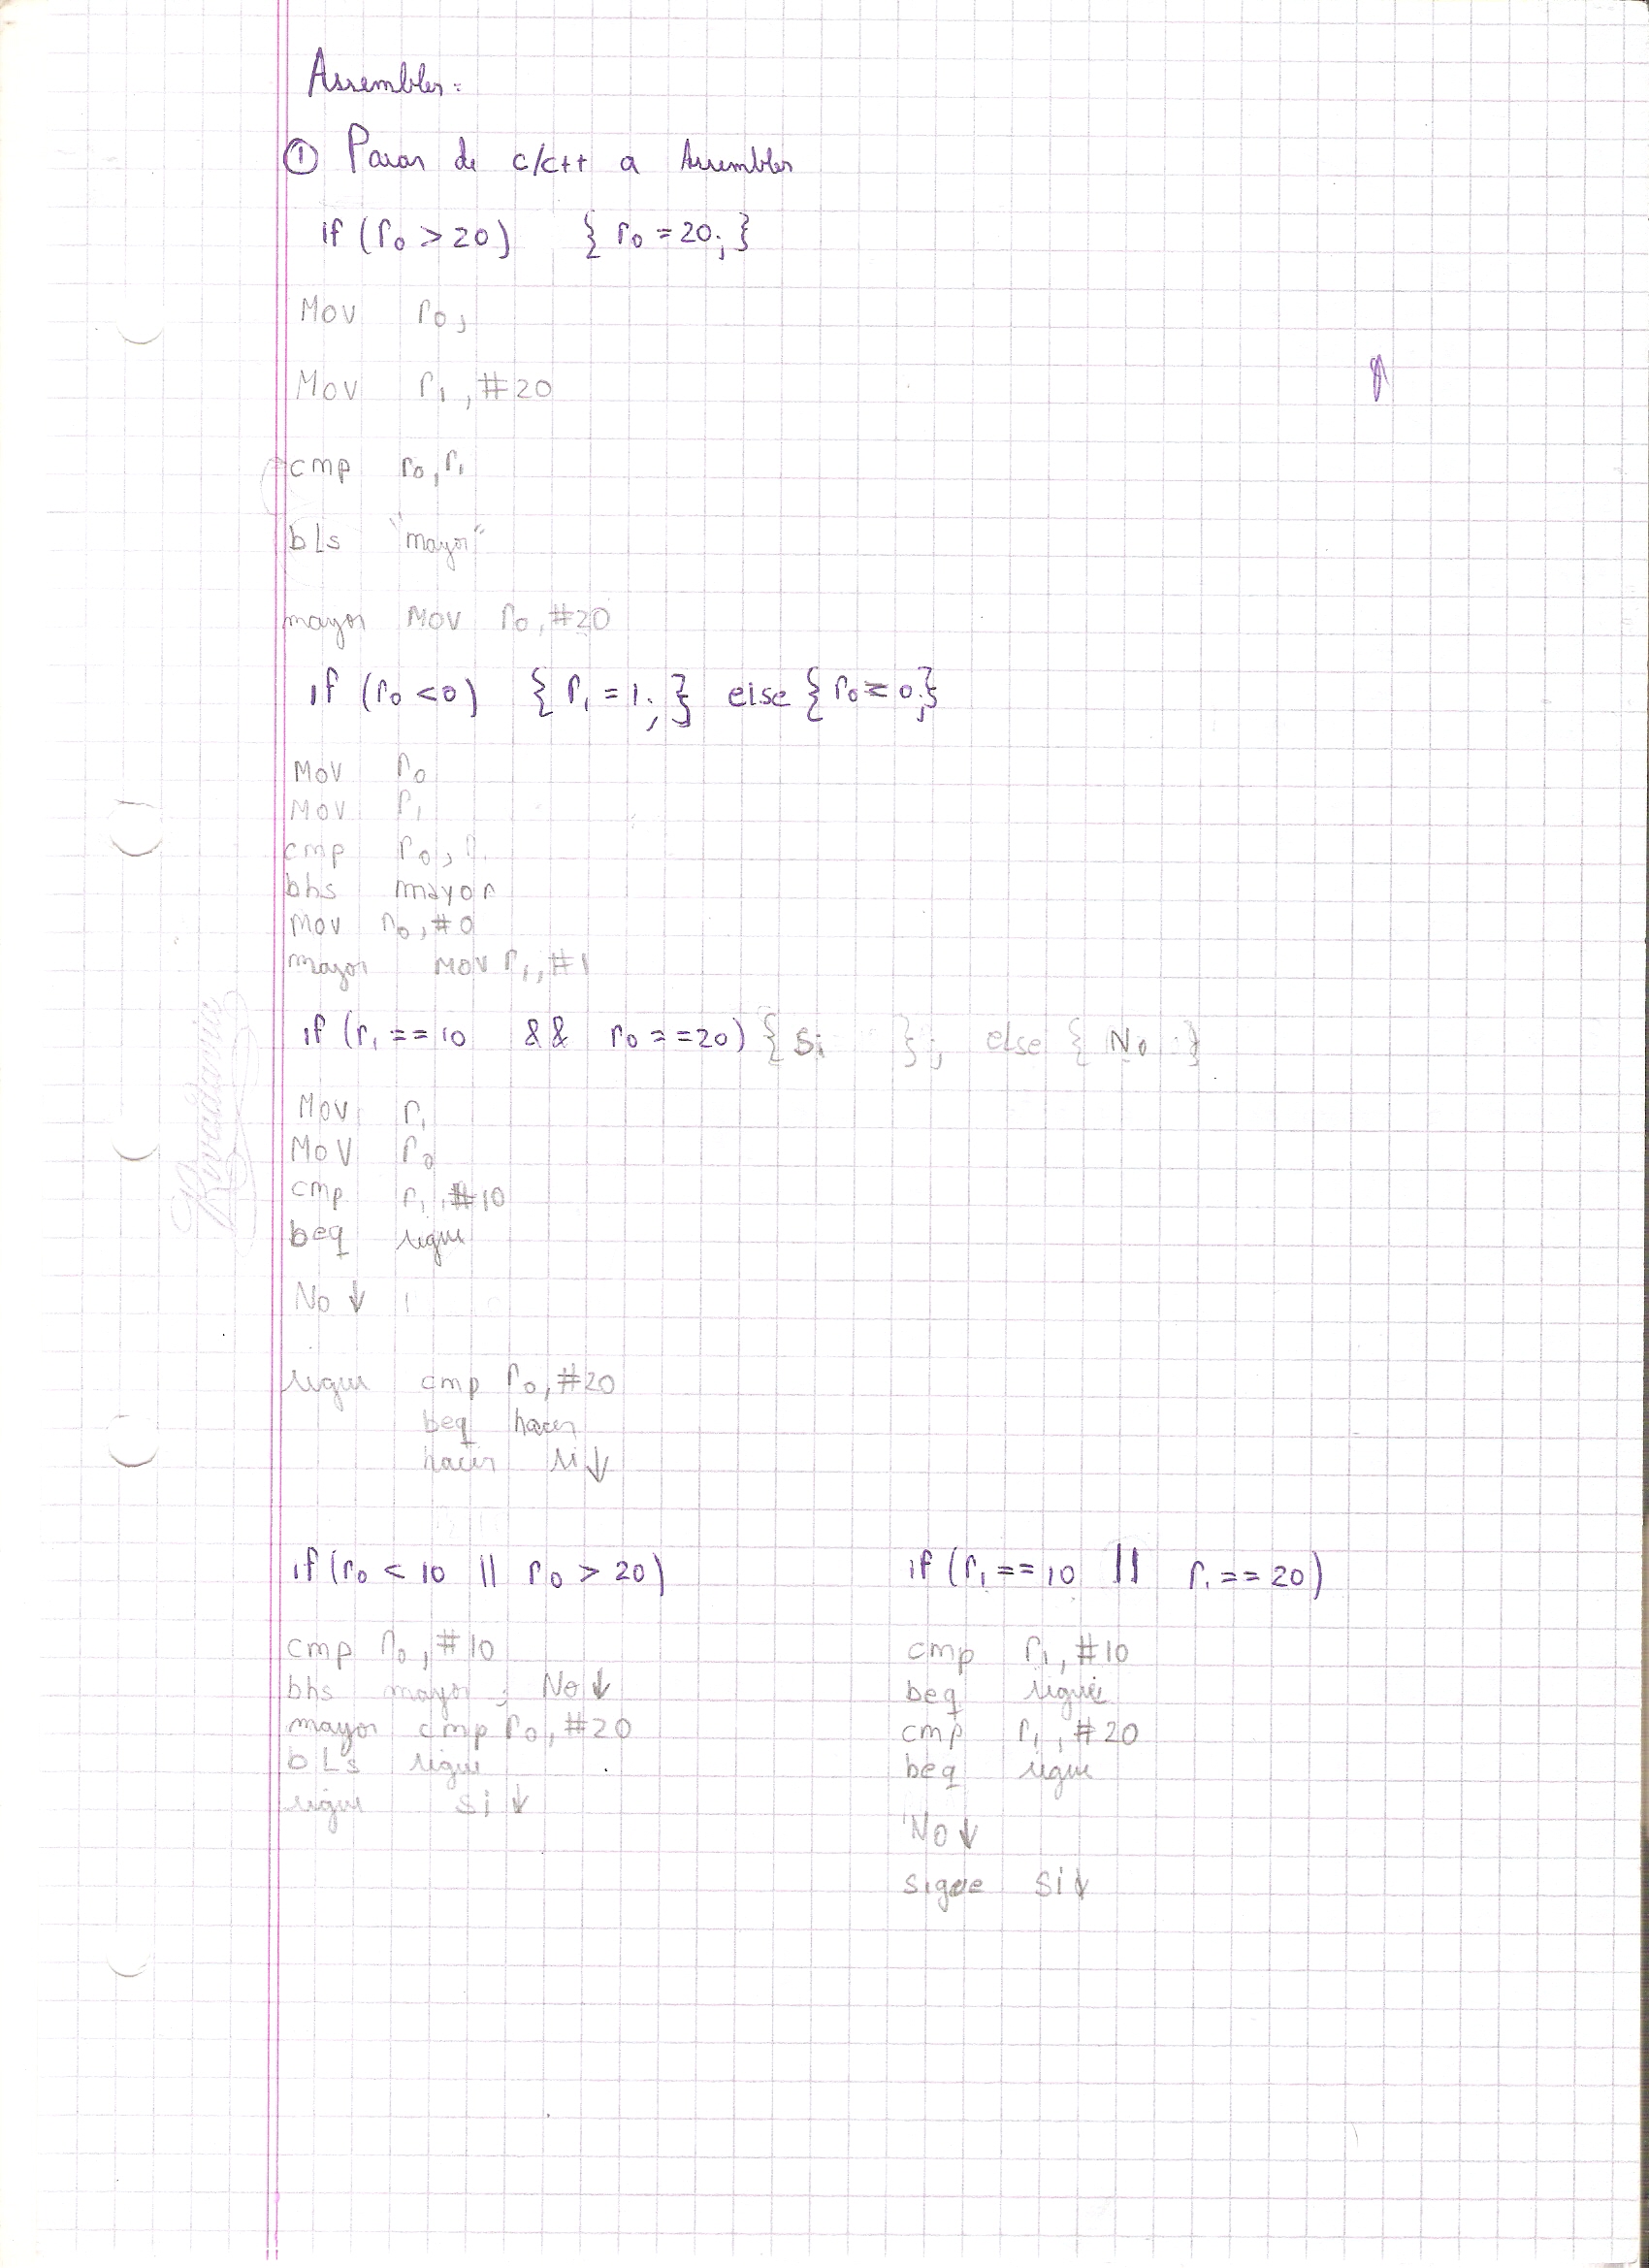 Assembler:
① Pasar de c/c++ a Assembler
if (r0 > 20) { r0 = 20; }
Mov r0,
Mov r1, #20
cmp r0, r1
bLs "mayor"
mayor Mov r0, #20
if (r0 < 0) { r1 = 1; } else { r0 = 0; }
Mov r0
Mov r1
cmp r0, r1
bhs mayor
Mov r0, #0
mayor Mov r1, #1
if (r1 == 10 && r0 == 20) { Si }; else { No }
Mov r1
Mov r0
cmp r1, #10
beq sigue
No ↓
sigue cmp r0, #20
beq hacer
hacer si ↓
if (r0 < 10 || r0 > 20)
cmp r0, #10
bhs mayor ; No ↓
mayor cmp r0, #20
bLs sigue
sigue Si ↓
if (r1 == 10 || r1 == 20)
cmp r1, #10
beq sigue
cmp r1, #20
beq sigue
No ↓
sigue Si ↓
Rivadavia